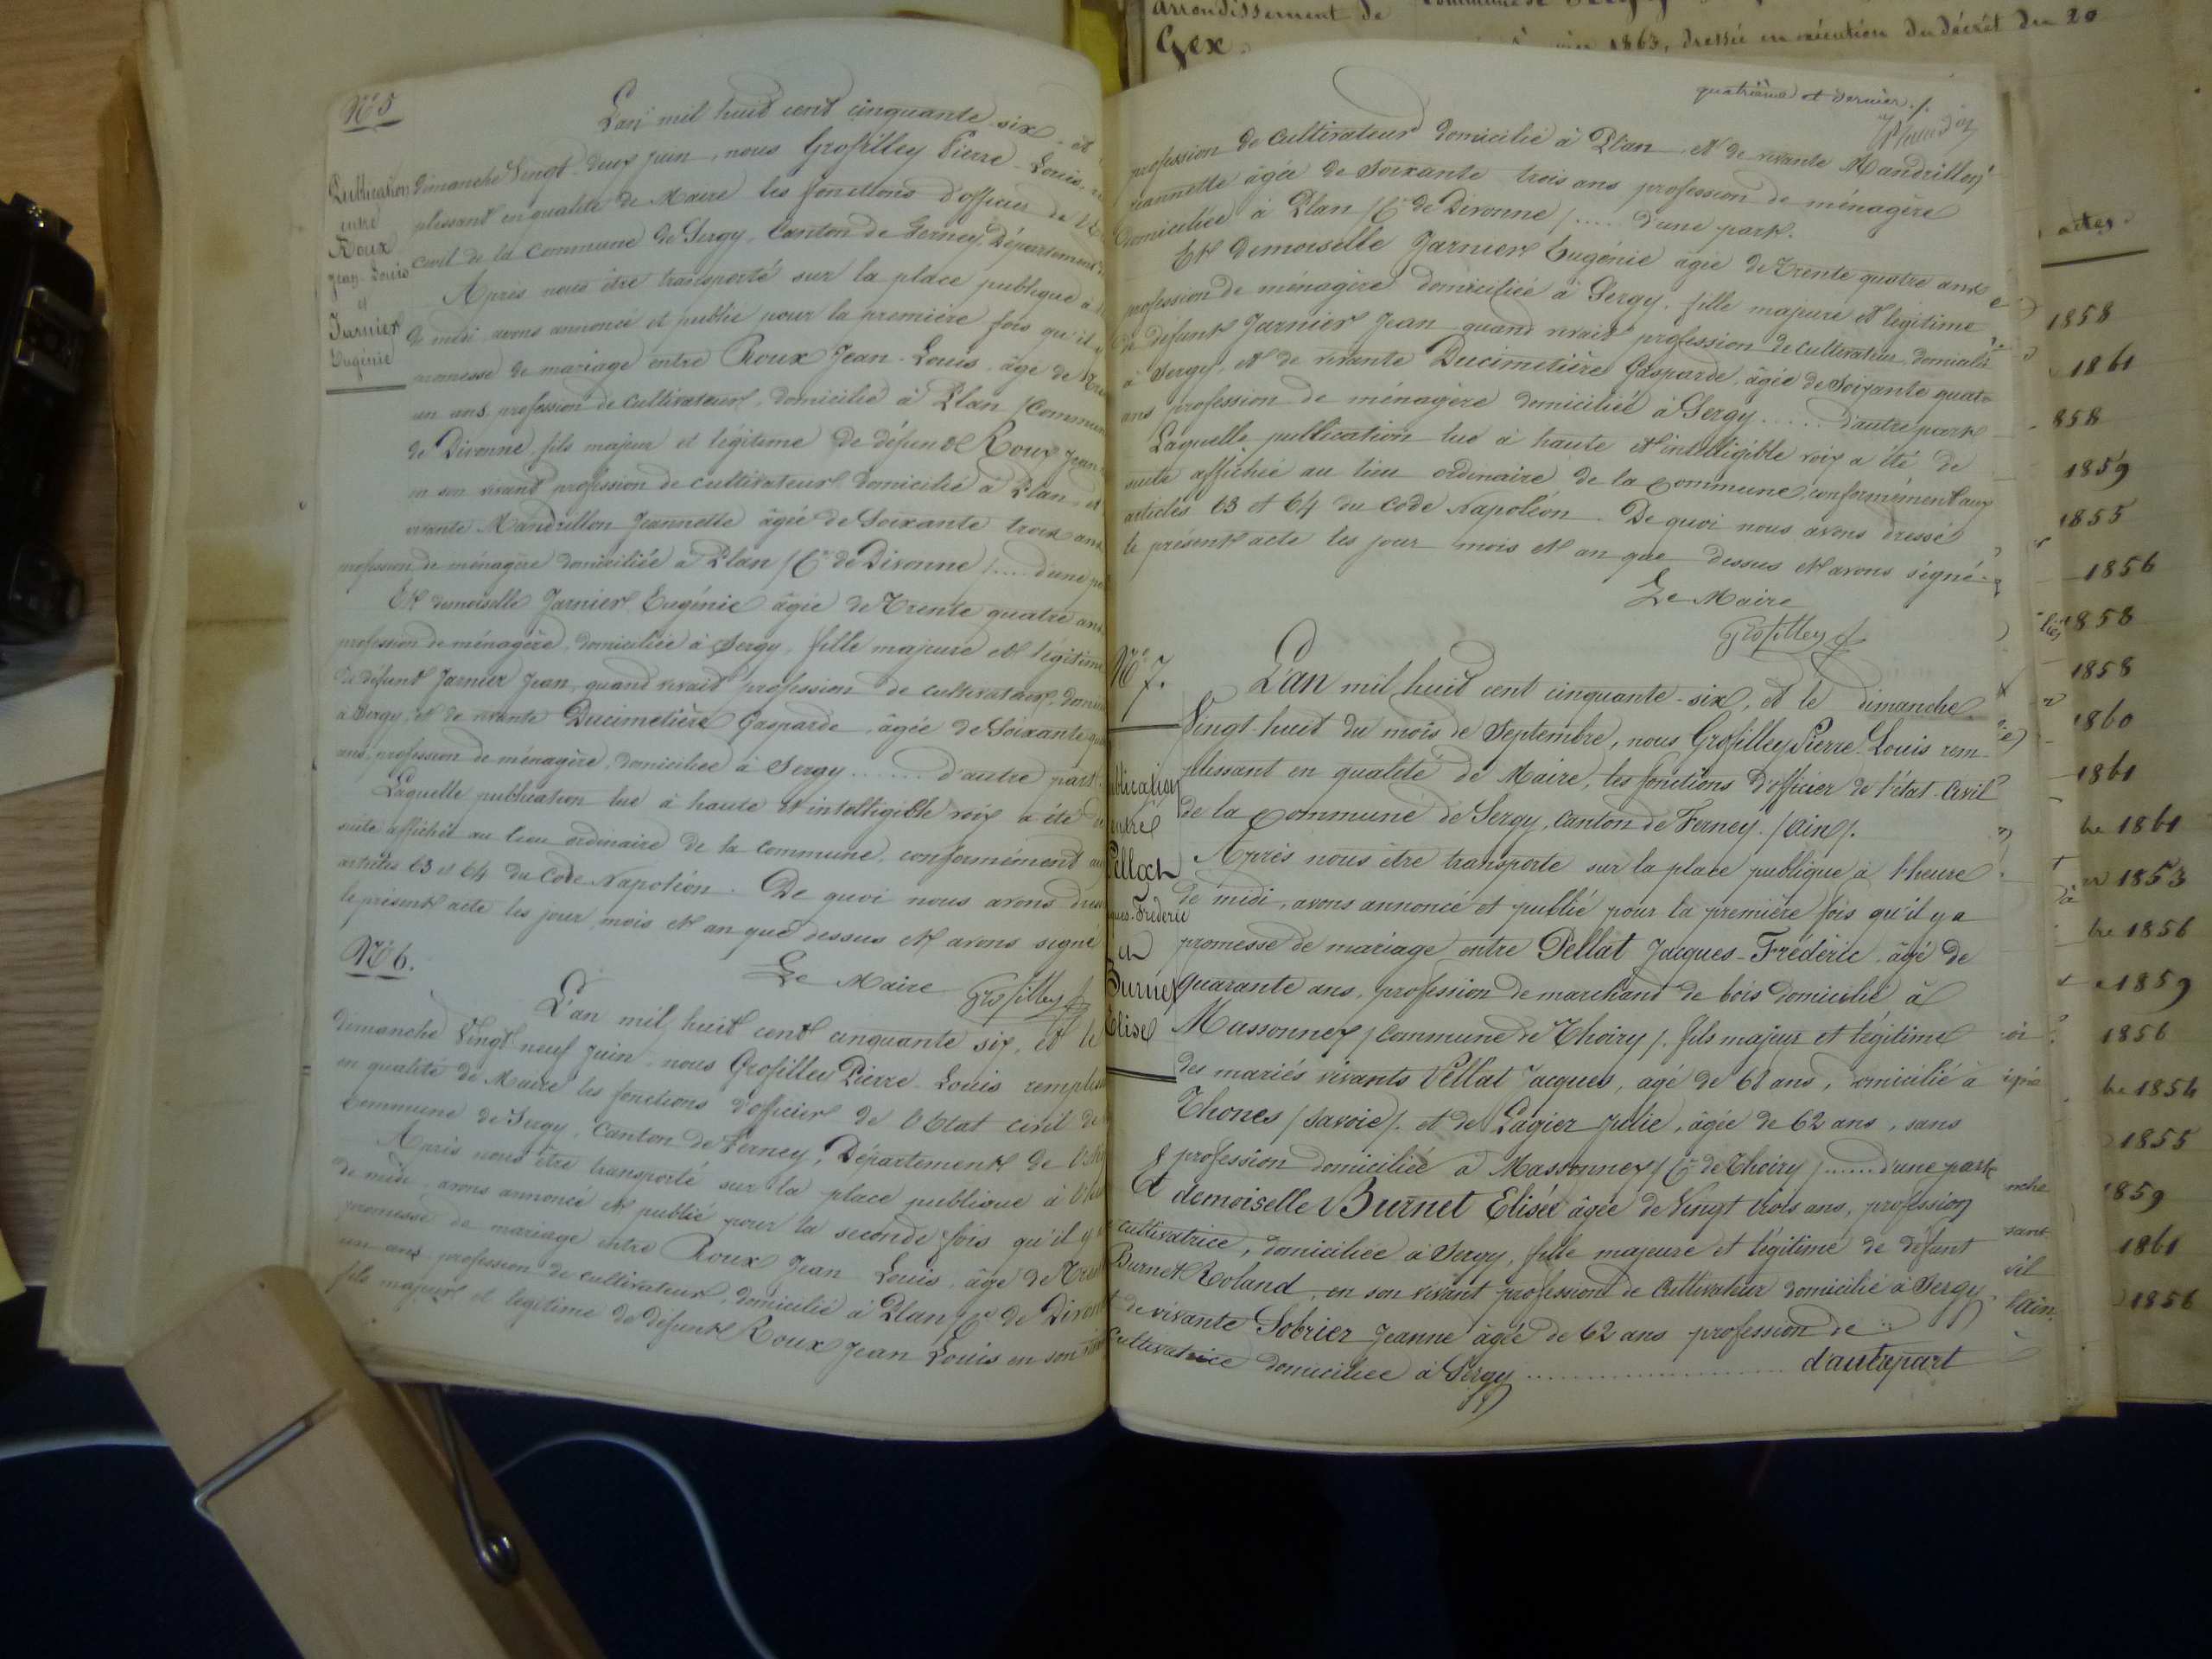 Nº 5
L'an mil huit cent cinquante-six, et
Publication
entre
Roux
Jean-Louis
et
Jarnier
Eugénie
dimanche Vingt-deux juin, nous Grosfilley Pierre-Louis,
plissant en qualité de Maire les fonctions d'officier de
civil de la Commune de Sergy, Canton de Ferney, Département
Après nous être transporté sur la place publique à
de midi, avons annoncé et publié pour la première fois qu'il
promesse de mariage entre Roux Jean-Louis, âgé de
un ans, profession de cultivateur, domicilié à Plan (Commune
de Divonne, fils majeur et légitime de défunt Roux Jean
en son vivant profession de cultivateur domicilié à Plan, et
vivante Mandrillon Jeannette âgée de Soixante trois ans
profession de ménagère domiciliée à Plan (Cne de Divonne) .... d'une
Et demoiselle Jarnier Eugénie âgée de Trente quatre ans
profession de ménagère, domiciliée à Sergy, fille majeure et légitime
de défunt Jarnier Jean, quand vivait profession de cultivateur,
à Sergy, et de vivante Ducimetière Gasparde, âgée de Soixante
ans, profession de ménagère, domiciliée à Sergy ...... d'autre part.
Laquelle publication lue à haute et intelligible voix a été de
suite affichée au lieu ordinaire de la commune, conformément aux
articles 63 et 64 du Code Napoléon. De quoi nous avons
le présent acte les jour, mois et an que dessus et avons signé
Le Maire
Grosfilley
Nº 6.
L'an mil huit cent cinquante six, et le
dimanche Vingt neuf juin, nous Grosfilley Pierre-Louis
en qualité de Maire les fonctions d'officier de l'Etat civil de
commune de Sergy, Canton de Ferney, Département de l'Ain
Après nous être transporté sur la place publique à
de midi, avons annoncé et publié pour la seconde fois qu'il y
promesse de mariage entre Roux Jean Louis, âgé de
un ans, profession de cultivateur, domicilié à Plan (Cne de
fils majeur et légitime de défunt Roux Jean Louis en son
quatrième et dernier ./.
profession de cultivateur domicilié à Plan, et de vivante Mandrillon
Jeannette âgée de Soixante trois ans profession de ménagère
domiciliée à Plan (Cne de Divonne) .... d'une part.
Et demoiselle Jarnier Eugénie âgée de Trente quatre ans
profession de ménagère domiciliée à Sergy, fille majeure et légitime
de défunt Jarnier Jean quand vivait profession de cultivateur, domicilié
à Sergy, et de vivante Ducimetière Gasparde, âgée de Soixante quatre
ans profession de ménagère domiciliée à Sergy ..... d'autre part
Laquelle publication lue à haute et intelligible voix a été de
suite affichée au lieu ordinaire de la commune conformément aux
articles 63 et 64 du Code Napoléon. De quoi nous avons dressé
le présent acte les jour mois et an que dessus et avons signé.
Le Maire
Grosfilley
Nº 7.
L'an mil huit cent cinquante-six, et le dimanche
Vingt-huit du mois de Septembre, nous Grosfilley Pierre-Louis rem-
plissant en qualité de Maire, les fonctions d'officier de l'état-civil
de la commune de Sergy, Canton de Ferney (Ain).
ublication
entre
Pellat
ques-Frédéric
et
Burnet
Elise
Après nous être transporté sur la place publique à l'heure
de midi, avons annoncé et publié pour la première fois qu'il y a
promesse de mariage entre Pellat Jacques-Frédéric, âgé de
quarante ans, profession de marchand de bois domicilié à
Massonnex (commune de Thoiry), fils majeur et légitime
des mariés vivants Pellat Jacques, âgé de 68 ans, domicilié à
Thones (Savoie), et de Lagier Julie, âgée de 62 ans, sans
profession domiciliée à Massonnex (Cne de Thoiry) ...... d'une part
Et demoiselle Burnet Elisée âgée de Vingt trois ans, profession
cultivatrice, domiciliée à Sergy, fille majeure et légitime de défunt
Burnet Roland, en son vivant profession de cultivateur domicilié à Sergy
et de vivante Sobrier Jeanne âgée de 62 ans profession de
cultivatrice domiciliée à Sergy .................... d'autre part
arrondissement de
Gex.
1863, dressée en exécution du décret du 20
actes.
1858
1861
858
1859
1855
1856
1858
1858
1860
1861
bre 1861
1853
bre 1856
1859
1856
bre 1854
1855
1859
1861
1856